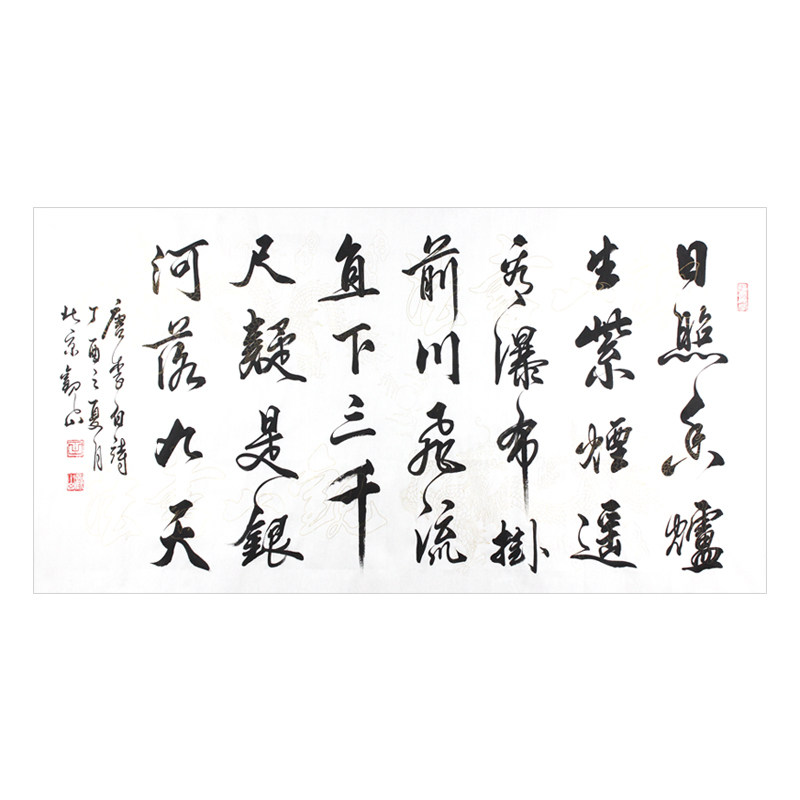 日照香爐
生紫煙遥
看瀑布掛
前川飛流
直下三千
尺疑是銀
河落九天
唐李白詩
丁酉之夏月
北京劉山